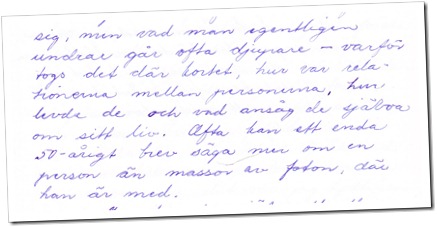 sig, men vad man egentligen
undrar går ofta djupare – varför
togs det där kortet, hur var rela-
tionerna mellan personerna, hur
levde de och vad ansåg de själva
om sitt liv. Ofta kan ett enda
50-årigt brev säga mer om en
person än massor av foton, där
han är med.